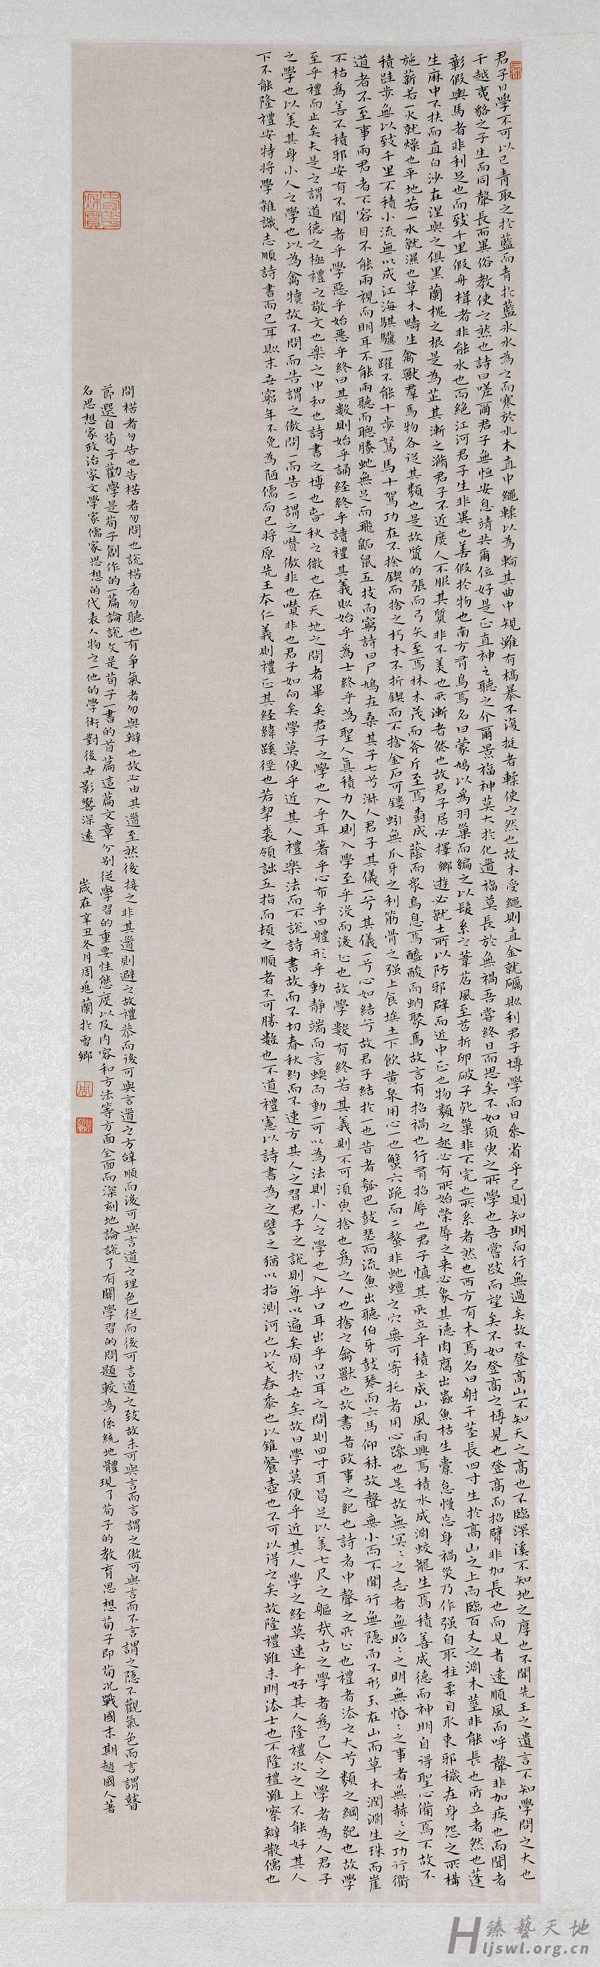 君子曰學不可以已青取之於藍而青於藍冰水為之而寒於水木直中繩輮以為輪其曲中規雖有槁暴不復挺者輮使之然也故木受繩則直金就礪則利君子博學而日參省乎己則知明而行無過矣故不登高山不知天之高也不臨深溪不知地之厚也不聞先王之遺言不知學問之大也
干越夷貉之子生而同聲長而異俗教使之然也詩曰嗟爾君子無恒安息請共爾位好是正直神之聽之介爾景福神莫大於化道福莫長於無禍吾嘗終日而思矣不如須臾之所學也吾嘗跂而望矣不如登高之博見也登高而招臂非加長也而見者遠順風而呼聲非加疾也而聞者
彰假輿馬者非利足也而致千里假舟楫者非能水也而絕江河君子生非異也善假於物也南方有鳥焉名曰蒙鳩以為羽巢而編之以髮系之葦苕風至苕折卵破子死巢非不完也所系者然也西方有木焉名曰射干莖長四寸生於高山之上而臨百丈之淵木莖非能長也所立者然也蓬
生麻中不扶而直白沙在涅與之俱黑蘭槐之根是為芷其漸之滫君子不近庶人不服其質非不美也所漸者然也故君子居必擇鄉遊必就士所以防邪辟而近中正也物類之起必有所始榮辱之來必象其德肉腐出蟲魚枯生蠹怠慢忘身禍災乃作强自取柱柔自取束邪穢在身怨之所構
施薪若一火就燥也平地若一水就濕也草木疇生禽獸群焉物各從其類也是故質的張而弓矢至焉林木茂而斧斤至焉樹成蔭而衆鳥息焉醯酸而蚋聚焉故言有招禍也行有招辱也君子慎其所立乎積土成山風雨興焉積水成淵蛟龍生焉積善成德而神明自得聖心備焉不故不
積跬步無以致千里不積小流無以成江海騏驥一躍不能十步駑馬十駕功在不捨鍥而捨之朽木不折鍥而不捨金石可鏤蚓無爪牙之利筋骨之强上食埃土下飲黃泉用心一也蟹六跪而二螯非蛇蟺之穴無可寄托者用心躁也是故無冥冥之志者無昭昭之明無惛惛之事者無赫赫之功行衢
道者不至事兩君者不容目不能兩視而明耳不能兩聽而聰螣蛇無足而飛鼫鼠五技而窮詩曰尸鳩在桑其子七兮淑人君子其儀一兮其儀一兮心如結兮故君子結於一也昔者瓠巴鼓瑟而流魚出聽伯牙鼓琴而六馬仰秣故聲無小而不聞行無隱而不形玉在山而草木潤淵生珠而崖
不枯為善不積邪安有不聞者乎學惡乎始惡乎終曰其數則始乎誦經終乎讀禮其義則始乎為士終乎為聖人真積力久則入學至乎沒而後止也故學數有終若其義則不可須臾捨也為之人也捨之禽獸也故書者政事之紀也詩者中聲之所止也禮者法之大兮類之綱紀也故學
至乎禮而止矣夫是之謂道德之極禮之敬文也樂之中和也詩書之博也春秋之微也在天地之間者畢矣君子之學也入乎耳著乎心布乎四體形乎動靜端而言蝡而動一可以為法則小人之學也入乎口耳出乎口口耳之間則四寸耳曷足以美七尺之軀哉古之學者為己今之學者為人君子
之學也以美其身小人之學也以為禽犢故不問而告謂之傲問一而告二謂之囋傲非也囋非也君子如向矣學莫便乎近其人禮樂法而不說詩書故而不切春秋約而不速方其人之習君子之說則尊以遍矣周於世矣故曰學莫便乎近其人學之經莫速乎好其人隆禮次之上不能好其人
下不能隆禮安特將學雜識志順詩書而已耳則末世窮年不免為陋儒而已將原先王本仁義則禮正其經緯蹊徑也若挈裘領詘五指而頓之順者不可勝數也不道禮憲以詩書為之譬之猶以指測河也以戈舂黍也以錐餐壺也不可以得之矣故隆禮雖未明法士也不隆禮雖察辯散儒也
問楛者勿告也告楛者勿問也說楛者勿聽也有爭氣者勿與辯也故必由其道至然後接之非其道則避之故禮恭而後可與言道之方辭順而後可與言道之理色從而後可言道之致故未可與言而言謂之傲可與言而不言謂之隱不觀氣色而言謂瞽
節選自荀子勸學是荀子創作的一篇論說文是荀子一書的首篇這篇文章分別從學習的重要性態度以及內容和方法等方面全面而深刻地論說了有關學習的問題較為系統地體現了荀子的教育思想荀子即荀況戰國末期趙國人著
名思想家政治家文學家儒家思想的代表人物之一他的學術對後世影響深遠 歲在辛丑冬月周兆蘭於雪鄉
臻藝天地
Hljswl.org.cn